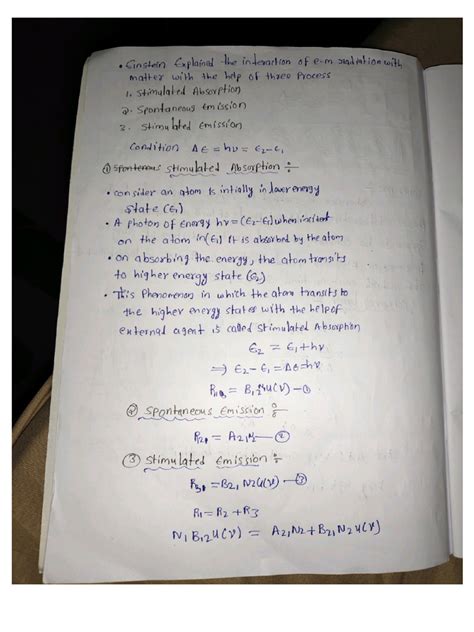 • Einstein Explained the interaction of e-m radiation with
matter with the help of three Process
1. Stimulated Absorption
2. Spontaneous Emission
3. Stimulated Emission
Condition ΔE = hν = E2-E1
① Stimulated Absorption :-
• consider an atom is intially in lower energy
state (E1)
• A photon of energy hν = (E2-E1) when incident
on the atom in(E1) It is absorbed by the atom
• on absorbing the energy, the atom transits
to higher energy state (E2)
• This Phenomenon in which the atom transits to
the higher energy states with the help of
external agent is called Stimulated Absorption
E2 = E1+hν
⇒ E2-E1 = ΔE=hν
= B12 u(ν) —①
② Spontaneous Emission :-
= A21 —②
③ Stimulated Emission :-
= B21 N2 u(ν) —③
R1 = R2 + R3
N1 B12 u(ν) = A21 N2 + B21 N2 u(ν)